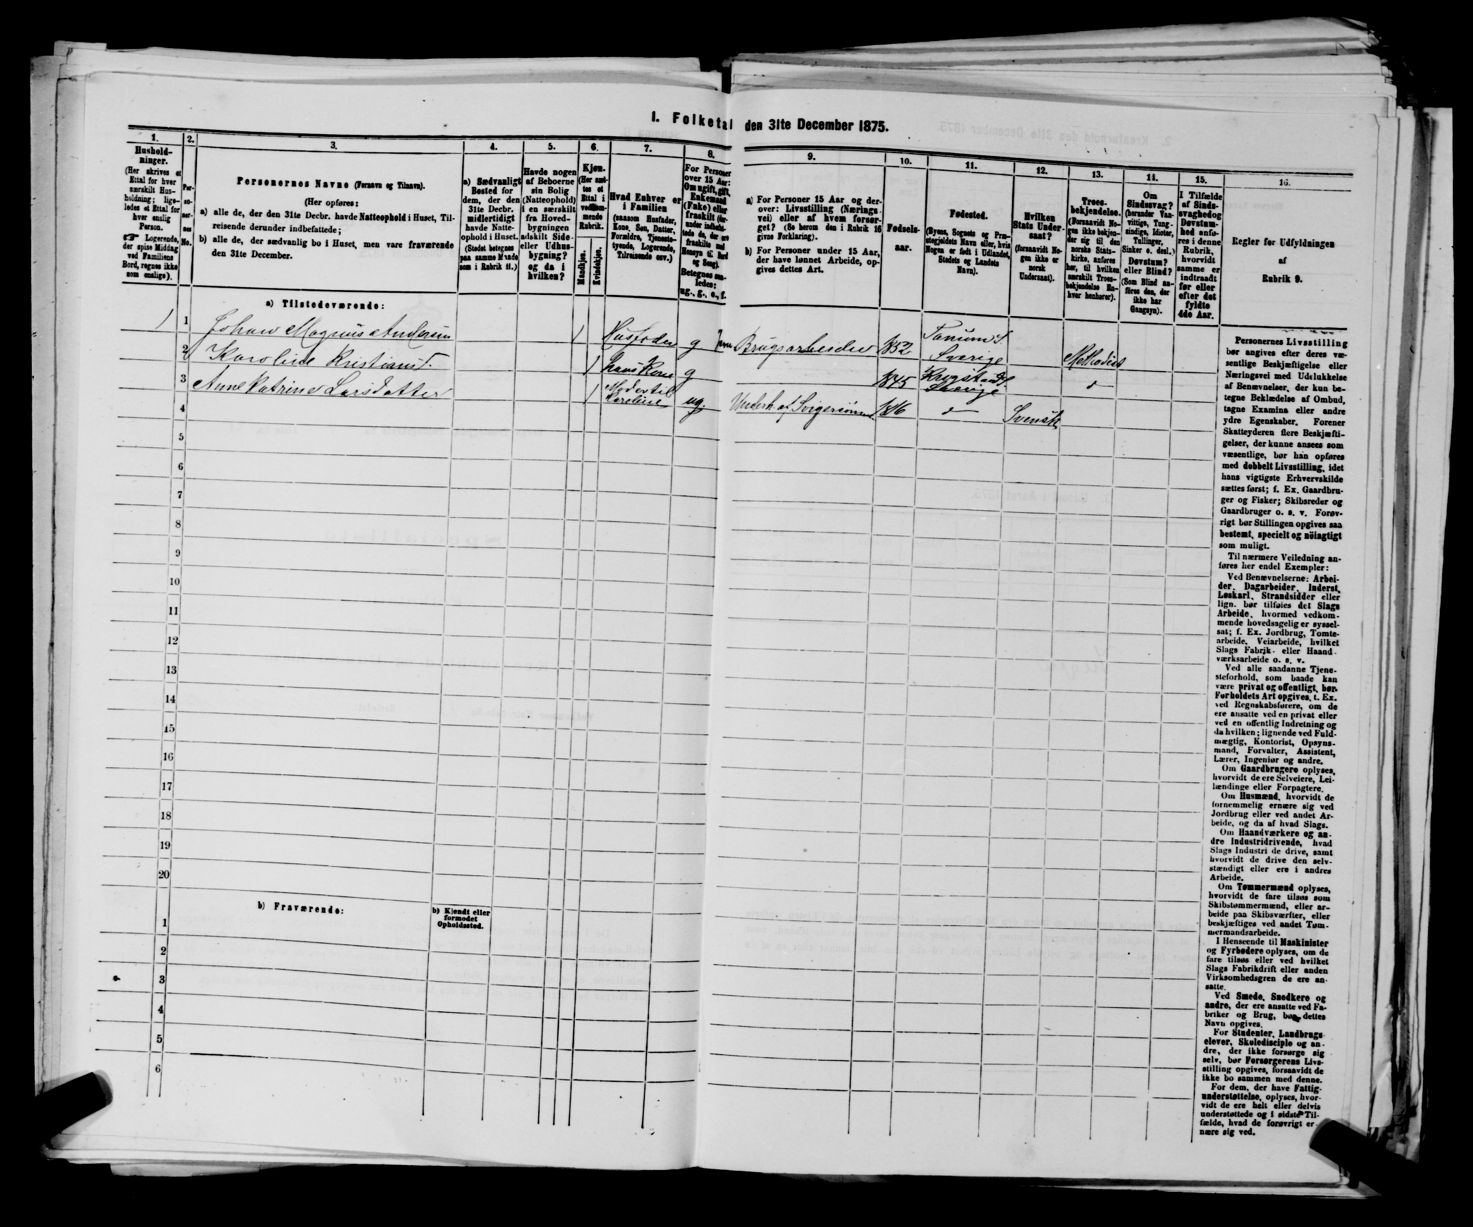 I. Folketal den 31te December 1875.
1.
Hushold-
ninger.
(Her skrives et
Ettal for hver
særskilt Hus-
holdning; lige-
ledes et Ettal for
hver enslig
Person.
☞ Logerende,
der spise Middag
ved Familiens
Bord, regnes ikke
som enslige).
2.
Per-
so-
ner-
nes
No.
3.
Personernes Navne (Fornavn og Tilnavn).
(Her opføres:
a) alle de, der den 31te Decbr. havde Natteophold i Huset, Til-
reisende derunder indbefattede;
b) alle de, der sædvanlig bo i Huset, men vare fraværende
den 31te December.
4.
a) Sædvanligt
Bosted for
dem, der den
31te Decbr.
midlertidigt
havde Natte-
ophold i Huset.
(Stedet betegnes
paa samme Maade
som i Rubrik 11.)
5.
Havde nogen
af Beboerne
sin Bolig
(Natteophold)
i en særskilt
fra Hoved-
bygningen
adskilt Side-
eller Udhus-
bygning?
og da i
hvilken?
6.
Kjøn.
(Her sæt-
tes et
Ettal i
vedkom-
mende
Rubrik.
Mandkjøn.
Kvindekjøn.
7.
Hvad Enhver er
i Familien
(saasom Husfader,
Kone, Søn, Datter,
Forældre, Tjeneste-
tyende, Logerende,
Tilreisende osv.)
8.
For Personer
over 15 Aar:
Om ugift, gift,
Enkemand
(Enke) eller
fraskilt
Betegnes saa-
ledes:
ug., g., e., f.
9.
a) For Personer 15 Aar og der-
over: Livsstilling (Nærings-
vei) eller af hvem forsør-
get? (Se herom den i Rubrik 16
givne Forklaring).
b) For Personer under 15 Aar,
der have lønnet Arbeide, op-
gives dettes Art.
10.
Fødsels-
aar.
11.
Fødested.
(Byens, Sognets og Præ-
stegjeldets Navn eller, hvis
Nogen er født i Udlandet,
Stedets og Landets
Navn).
12.
Hvilken
Stats Under-
saat?
(forsaavidt No-
gen ikke er
norsk
Undersaat).
13.
Troes-
bekjendelse.
(Forsaavidt No-
gen ikke bekjen-
der sig til den
norske Stats-
kirke, anføres
her, til hvilken
særskilt Troes-
bekjendelse Ra-
hver henhører).
14.
Om
Sindssvag?
(herunder Van-
vittige, Tung-
sindige, Idioter,
Tullinger,
Sinker o. desl.)
Døvstum?
eller Blind?
(Som Blind an-
føres den, der
ikke har
Gangsyn).
15.
I Tilfælde
af Sinds-
svaghed og
Døvstum-
hed anfø-
res i denne
Rubrik,
hvorvidt
samme er
indtraadt
før eller
efter det
fyldte
4de Aar.
16.
Regler for Udfyldningen
af
Rubrik 9.
a) Tilstedeværende:
1 1 Johan Magnus Andersen 1 Husfader g Brugsarbeider 1852 Tanum
Sverige Methodist
2 Karoline Kristians 1 hans Kone g 1845
Sverige
3 Anne Katrine Larsdatter 1 Moder til
Karoline ug. 1816 Svensk
4
5
6
7
8
9
10
11
12
13
14
15
16
17
18
19
20
b) Fraværende:
b) Kjendt eller
formodet
Opholdssted.
1
2
3
4
5
6
Personernes Livsstilling
bør angives efter deres væ-
sentlige Beskjæftigelse eller
Næringsvei med Udelukkelse
af Benævnelser, der kun be-
tegne Beklædelse af Ombud,
tagne Examina eller andre
ydre Egenskaber. Forener
Skatteyderen flere Beskjæfti-
gelser, der kunne ansees som
væsentlige, bør han opføres
med dobbelt Livsstilling, idet
hans vigtigste Erhvervskilde
sættes først; f. Ex. Gaardbru-
ger og Fisker; Skibsreder og
Gaardbruger o. s. v. Forøv-
rigt bør Stillingen opgives saa
bestemt, specielt og nöiagtigt
som muligt.
Til nærmere Veiledning an-
føres her endel Exempler:
Ved Benævnelserne: Arbei-
der, Dagarbeider, Inderst,
Løskarl, Strandsidder eller
lign. bør tilføies det Slags
Arbeide, hvormed vedkom-
mende hovedsagelig er syssel-
sat; f. Ex. Jordbrug, Tomte-
arbeide, Veiarbeide, hvilket
Slags Fabrik- eller Haand-
værksarbeide o. s. v.
Ved alle saadanne Tjene-
steforhold, som baade kan
være privat og offentligt, bør
Forholdets Art opgives, f. Ex.
ved Regnskabsførere, om de
ere ansatte ved en privat eller
ved en offentlig Indretning og
da hvilken; lignende ved Fuld-
mægtig, Kontorist, Opsyns-
mand, Forvalter, Assistent,
Lærer, Ingeniør og andre.
Om Gaardbrugere oplyses,
hvorvidt de ere Selveiere, Lei-
lændinge eller Forpagtere.
Om Husmænd, hvorvidt de
fornemmelig ernære sig ved
Jordbrug eller ved andet Ar-
beide, og da af hvad Slags.
Om Haandværkere og an-
dre Industridrivende, hvad
Slags Industri de drive, samt
hvorvidt de drive den selv-
stændigt eller ere i andres
Arbeide.
Om Tømmermænd oplyses,
hvorvidt de fare tilsøs som
Skibstømmermænd, eller ar-
beide paa Skibsværfter, eller
beskjæftiges ved andet Tøm-
mermandsarbeide.
I Henseende til Maskinister
og Fyrbødere oplyses, om de
fare tilsøs eller ved hvilket
Slags Fabrikdrift eller anden
Virksomhedsgren de ere an-
satte.
Ved Smede, Snedkere og
andre, der ere ansatte ved Fa-
briker og Brug, bør dettes
Navn opgives.
For Studenter, Landbrugs-
elever, Skoledisciple og an-
dre, der ikke forsørge sig
selv, bør Forsørgerens Livs-
stilling opgives, forsaavidt de
ikke bo sammen med denne.
For dem, der have Fattig-
understøttelse, oplyses, hvor-
vidt de ere helt eller delvis
understøttede og i sidste Til-
fælde, hvad de forøvrigt er-
nære sig ved.